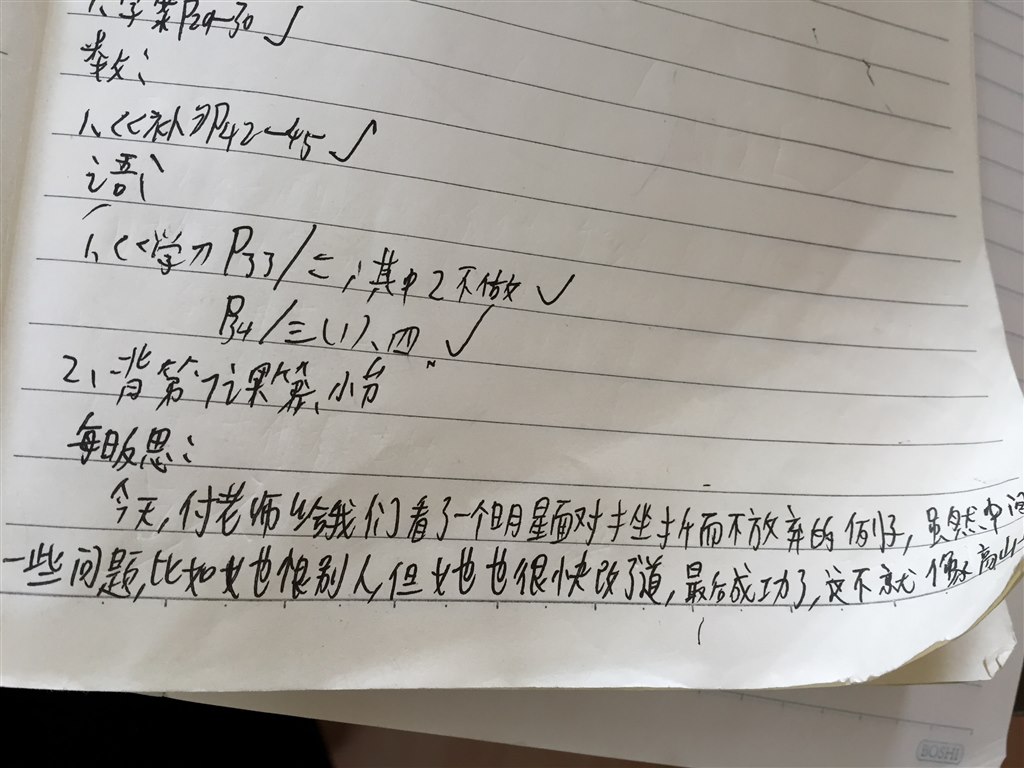 1、学案P29-30 √
数:
1、<<补>>P42-45 √
语:
1、<<学>>P33/二,其中2不做 √
P34/三(1)、四 √
2、背第7课第、小节
每日反思:
今天,付老师给我们看了一个明星面对挫折而不放弃的例子,虽然中间
一些问题,比如她恨别人,但她也很快改了道,最后成功了,这不就像高山
BOSHI